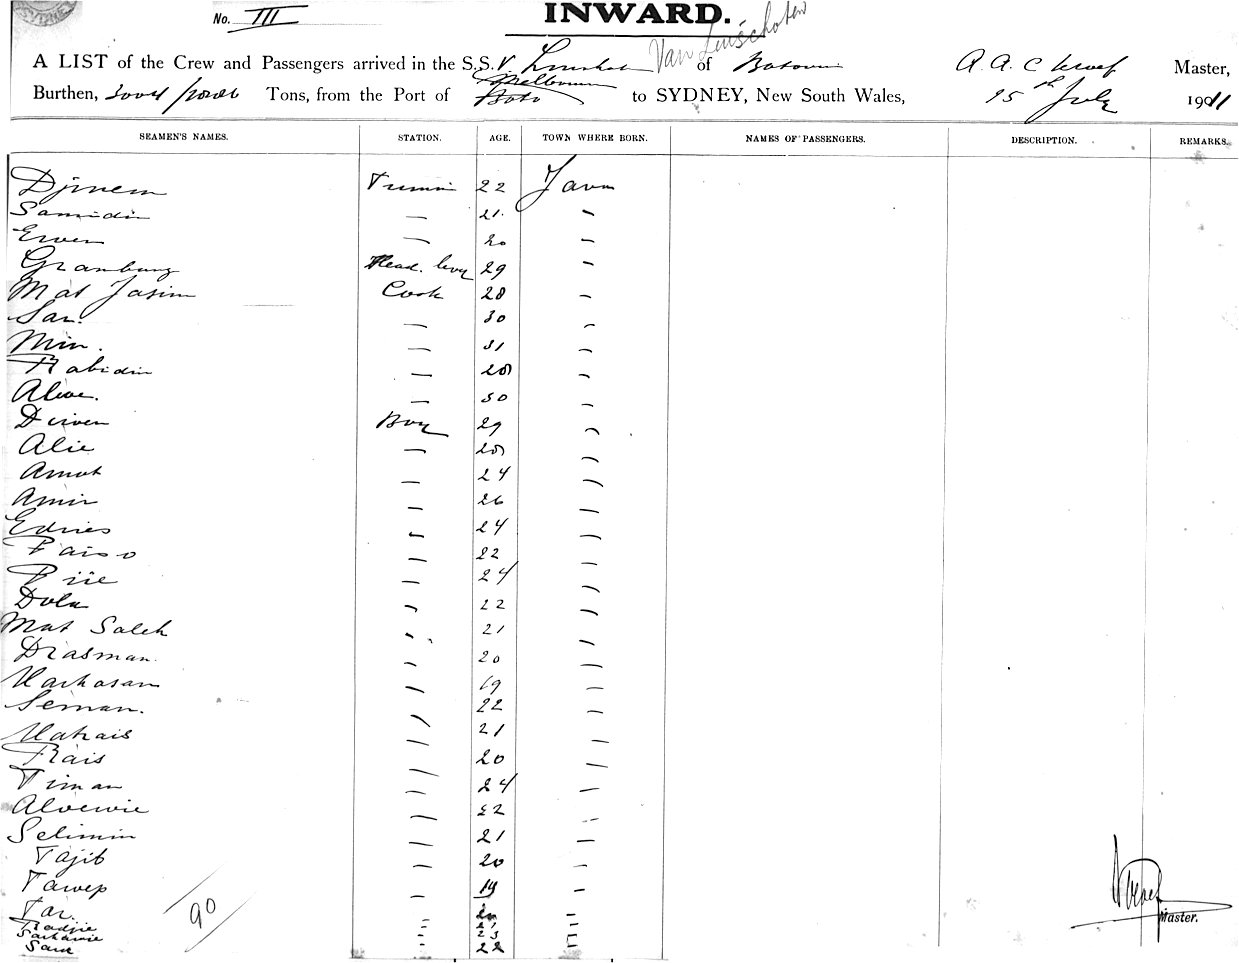 No. III
INWARD.
Van Linschoten
A LIST of the Crew and Passengers arrived in the S.S. V. Linschoten of Batavia A. A. C Master,
Burthen, Tons, from the Port of Melbourne to SYDNEY, New South Wales, 15th July 1911
SEAMEN'S NAMES. STATION. AGE. TOWN WHERE BORN. NAMES OF PASSENGERS. DESCRIPTION. REMARKS.
Djinem 22 Java
Samidin — 21. —
Erven — 20 —
Grambang Head. boy 29 —
Mat Jasim Cook 28 —
Sar. — 30 —
Min. — 31 —
Rabidin — 28 —
— 30 —
Boy 29 —
Alie — 28 —
Amat — 24 —
Amir — 26 —
Edries — 24 —
Paiso — 22 —
— 24 —
Dola — 22 —
Mat Saleh — 21 —
Drasman. — 20 —
Markasan — 19 —
Seman. — 22 —
Matrais — 21 —
Rais — 20 —
Timan — 24 —
Aloewie — 22 —
Selimin — 21 —
Tajib — 20 —
Tawep — 19 —
Tar. "
Radjie " 21 "
" 23 "
" 22 "
90
Master.